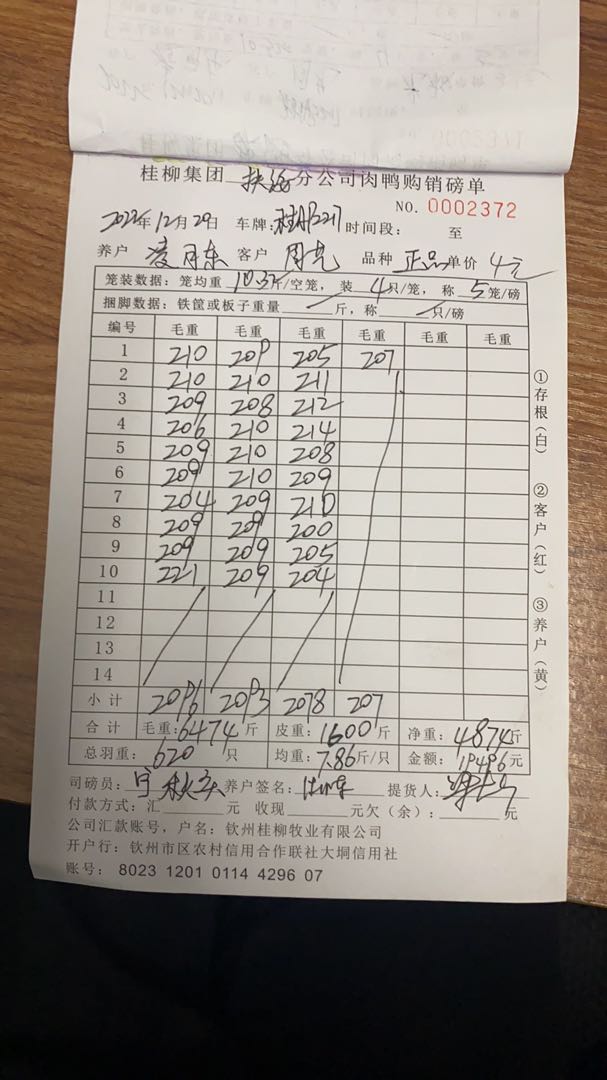 0002371
桂柳集团 扶海 分公司肉鸭购销磅单
NO. 0002372
2022年12月29日 车牌: 时间段: 至
养户 凌月东 客户 周亮 品种 正品 单价 4元
笼装数据:笼均重 10.3斤/空笼,装 4只/笼,称 5笼/磅
捆脚数据:铁筐或板子重量 斤,称 只/磅
编号 毛重 毛重 毛重 毛重 毛重 毛重
1 210 209 205 207
2 210 210 211
3 209 208 212
4 206 210 214
5 209 210 208
6 209 210 209
7 204 209 210
8 209 209 200
9 209 209 205
10 221 209 204
11
12
13
14
小计 2096 2093 2078 207
合计 毛重:6474斤 皮重:1600斤 净重:4874斤
总羽重:620只 均重:7.86斤/只 金额:19496元
司磅员: 养户签名: 提货人:
付款方式:汇 元 收现 元欠(余): 元
公司汇款账号,户名:钦州桂柳牧业有限公司
开户行:钦州市区农村信用合作联社大垌信用社
账号:8023 1201 0114 4296 07
①存根(白) ②客户(红) ③养户(黄)